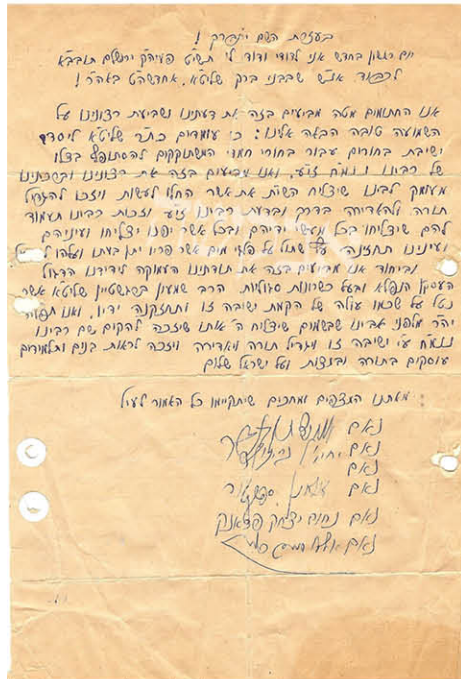 בעזהת השם יתברך !
יום ראשון בחדש אני לדודי ודודי לי תשי"ט פעיה"ק ירושלים תובב"א
לכבוד אנ"ש שבבני ברק שליט"א, אחדשה"ט באה"ר !
אנו החתומים מטה מביעים בזה את דעתנו ושביעת רצונינו על
השמועה טובה הבאה אלינו: כי עומדים כת"ר שליט"א ליסד
ישיבת בחורים עבור בחורי חמד המשתוקקים להסתופף בצלו
של רבינו זי"ע, ואנו מביעים בזה את רצונינו
מעומק לבינו שיצליח השי"ת את אשר החלו לעשות ויזכו להגדיל
תורה ולהאדירה בדרך ובדעת רבינו זי"ע וזכות רבינו תעמוד
להם שיצליחו בכל מעשי ידיהם ובכל אשר יפנו יצליחו ועיניהם
ועינינו תחזינה שתול על פלגי מים אשר פריו יתן בעתו ועלהו לא יבול
וביחוד אנו מביעים בזה את תודתנו העמוקה לידידנו הדגול
העסקן הנפלא ובעל כשרונות הרב שמעון שליט"א אשר
נטל על שכמו עולה של הקמת ישיבה זו ותחזקנה ידיו, ואנו תפילה
יה"ר מלפני אבינו שבשמים שיצליח ה' אותו שיזכה להקים שם רבינו
ע"י ישיבה זו ויגדיל תורה ויאדירה ויזכה לראות בנים ותלמידים
עוסקים בתורה ובמצות ועל ישראל שלום
מאתנו המצפים ומחכים שיתקיימו כל האמור לעיל :
נאם
נאם
נאם
נאם
נאם נחום יצחק פראנק
נאם